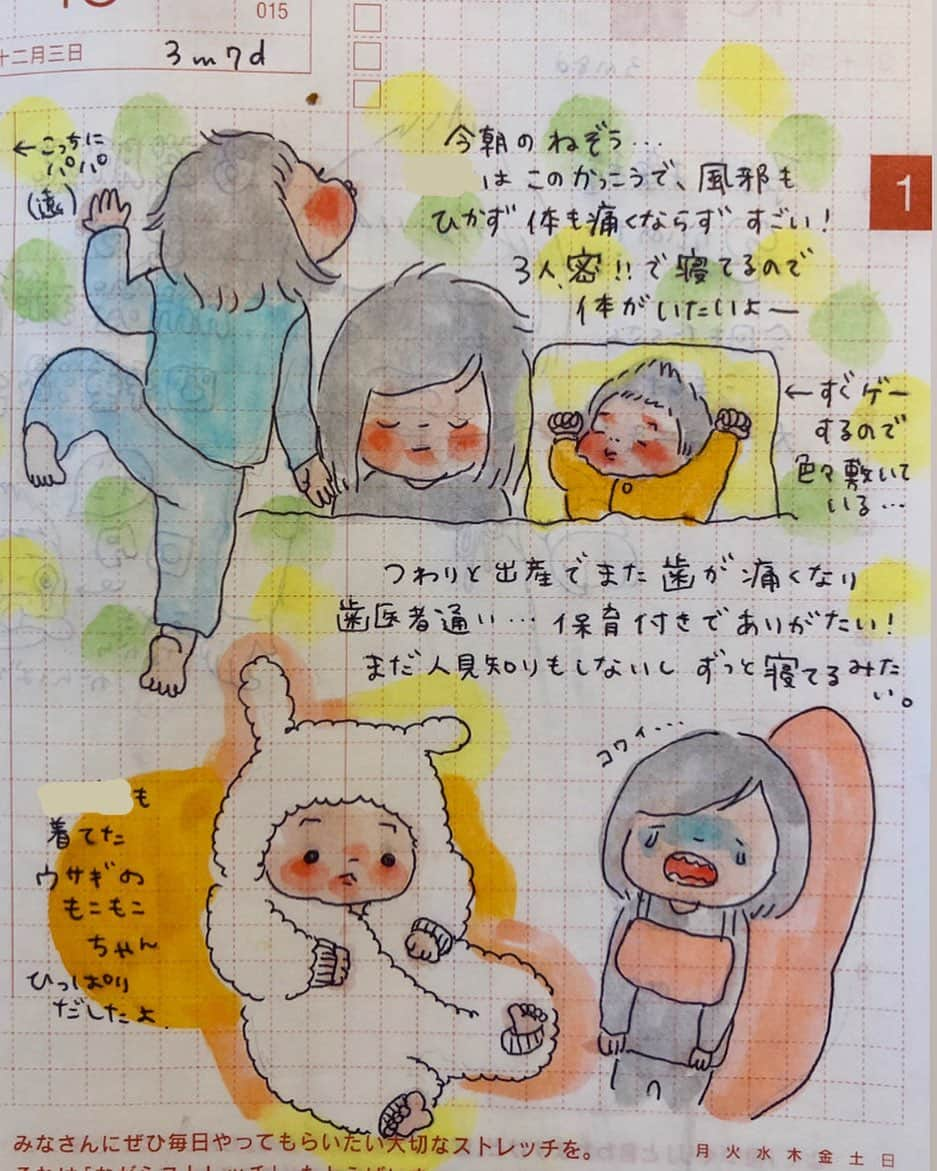 015
十二月三日
3m7d
←こっちに
パパ
(遠)
今朝のねぞう…
はこのかっこうで、風邪も
ひかず体も痛くならずすごい!
3人、密!!で寝てるので
体がいたいよー
1
←すぐゲー
するので
色々敷いて
いる…
つわりと出産でまた歯が痛くなり
歯医者通い…保育付きでありがたい!
まだ人見知りもしないしずっと寝てるみた
い。
コワイ…
も
着てた
ウサギの
もこもこ
ちゃん
ひっぱり
だしたよ
みなさんにぜひ毎日やってもらいたい大切なストレッチを。
月火水木金土日